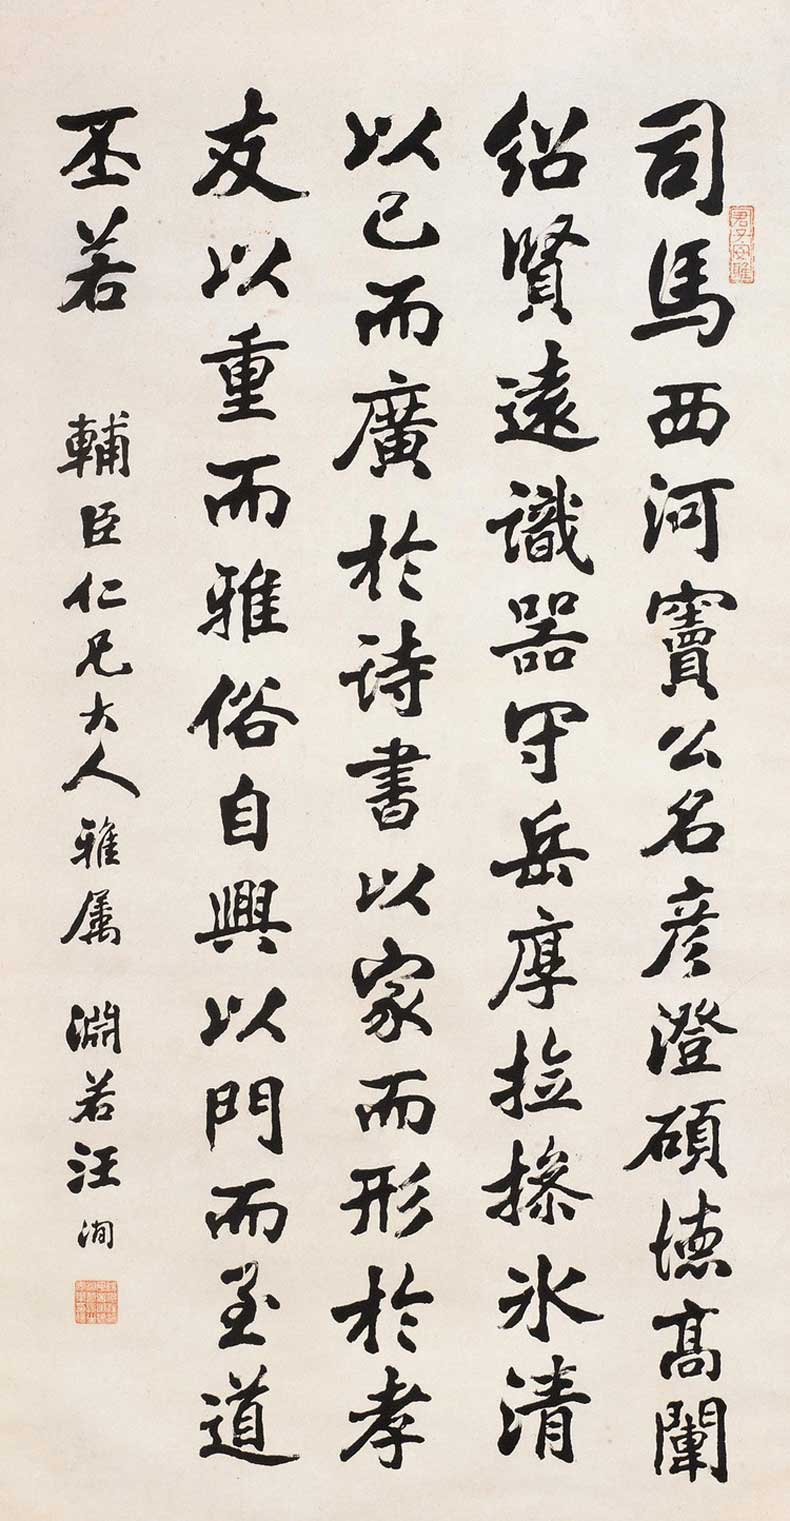 司馬西河竇公名彥澄碩德高闡
紹賢遠識器守岳厚撿操氷清
以己而廣於詩書以家而形於孝
友以重而雅俗自興以門而至道
丕若
輔臣仁兄大人雅屬 淵若汪洵